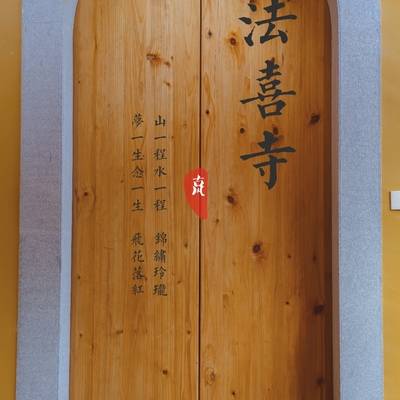 法喜寺
山一程水一程 錦繡玲瓏
夢一生念一生 飛花落紅